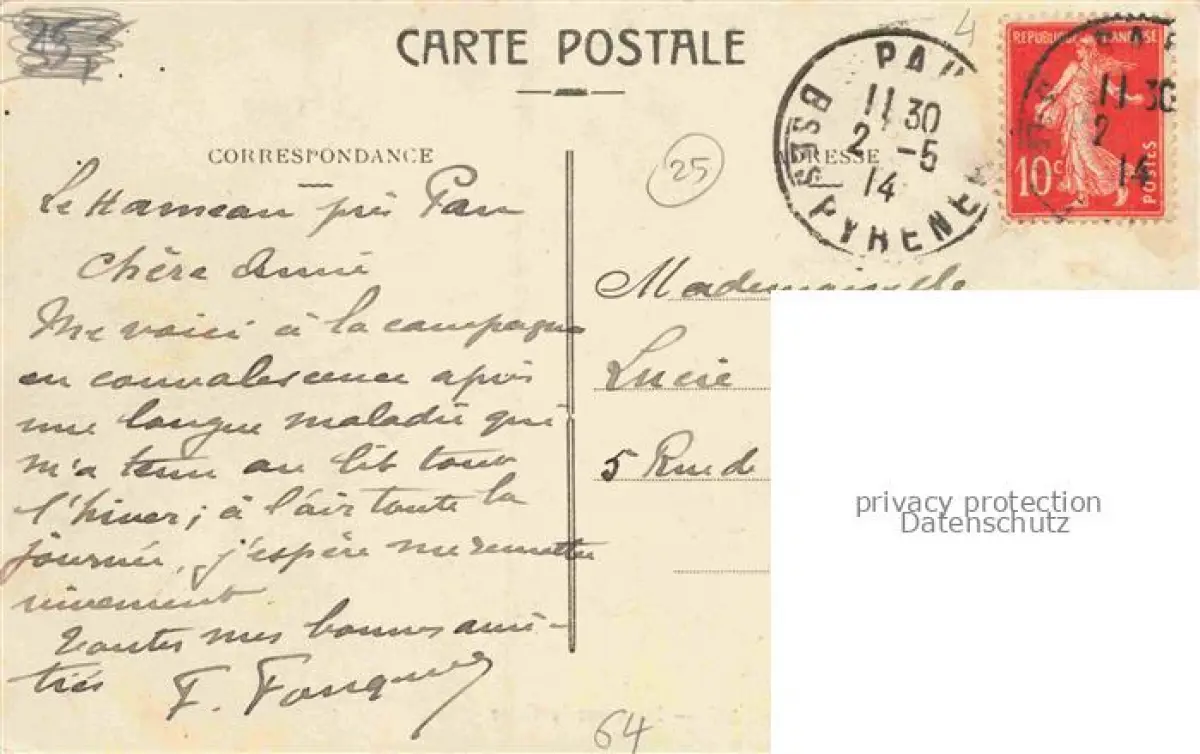 25
CARTE POSTALE
4
PAU
11 30
2 -5
14
BSES PYRENEES
REPUBLIQUE FRANÇAISE
11 30
2
14
10c
POSTES
CORRESPONDANCE
25
ADRESSE
Le Hameau près Pau
Chère Amie
Me voici à la campagne
en convalescence après
une longue maladie qui
m'a tenu au lit tout
l'hiver; à l'air toute la
journée, j'espère me remettre
vivement.
Toutes mes bonnes ami-
tiés
F.
Mademoiselle
Lucie
5 Rue de
privacy protection
Datenschutz
64